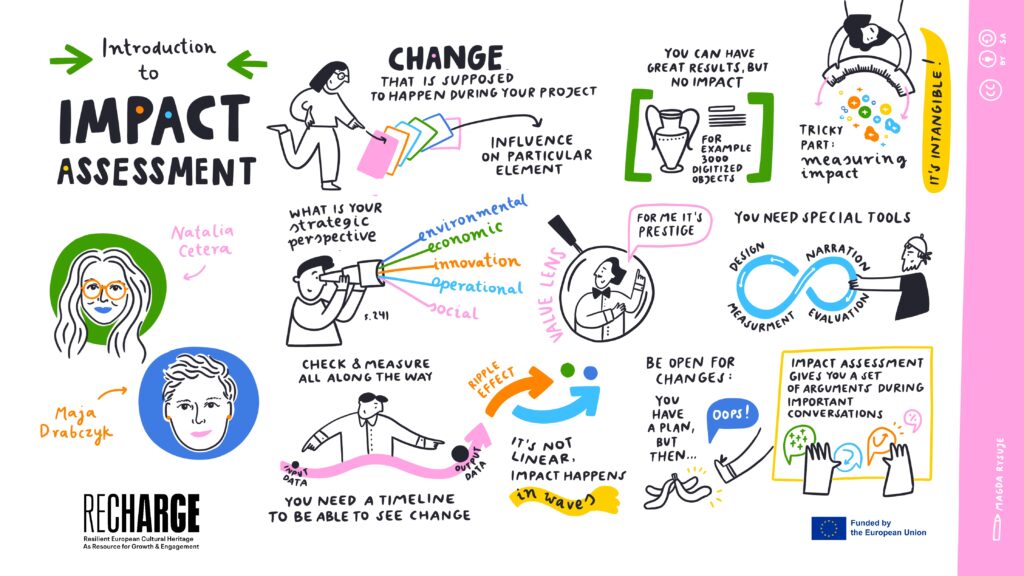 Introduction
to
IMPACT
ASSESSMENT
CHANGE
THAT IS SUPPOSED
TO HAPPEN DURING YOUR PROJECT
INFLUENCE
ON PARTICULAR
ELEMENT
YOU CAN HAVE
GREAT RESULTS, BUT
NO IMPACT
FOR
EXAMPLE
3000
DIGITIZED
OBJECTS
TRICKY
PART:
measuring
impact
IT'S INTANGIBLE!
Natalia
Cetera
Maja
Drabczyk
WHAT IS YOUR
strategic
perspective
environmental
economic
innovation
operational
social
s. 241
VALUE LENS
FOR ME IT'S
PRESTIGE
YOU NEED SPECIAL TOOLS
DESIGN
NARRATION
MEASURMENT
EVALUATION
CHECK & MEASURE
ALL ALONG THE WAY
INPUT
DATA
OUTPUT
DATA
YOU NEED A TIMELINE
TO BE ABLE TO SEE CHANGE
RIPPLE
EFFECT
IT'S NOT
LINEAR,
IMPACT HAPPENS
in waves
BE OPEN FOR
CHANGES:
YOU
HAVE
A PLAN,
BUT
THEN...
OOPS!
IMPACT ASSESSMENT
GIVES YOU A SET
OF ARGUMENTS DURING
IMPORTANT
CONVERSATIONS
RECHARGE
Resilient European Cultural Heritage
As Resource for Growth & Engagement
Funded by
the European Union
CC BY SA
MAGDA RYSUJE